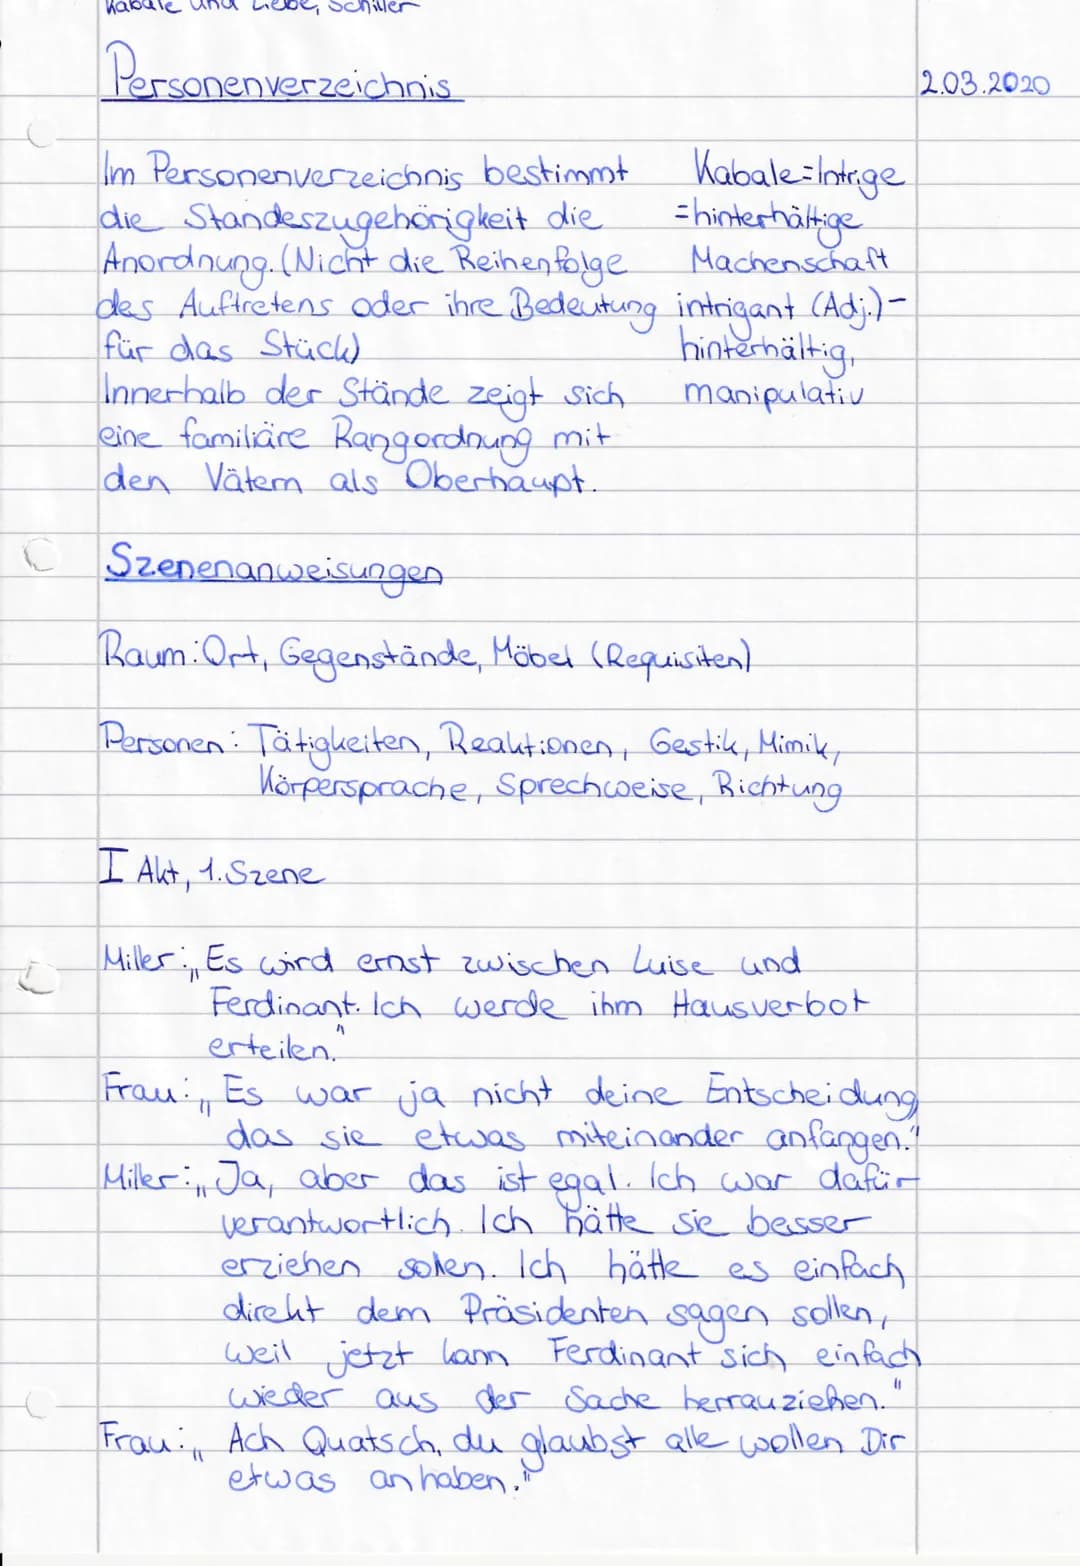 Kabale und Liebe, Schiller
Personenverzeichnis
2.03.2020
Im Personenverzeichnis bestimmt
die Standeszugehörigkeit die
Anordnung. (Nicht die Reihenfolge
des Auftretens oder ihre Bedeutung
für das Stück)
Innerhalb der Stände zeigt sich
eine familiäre Rangordnung mit
den Vätern als Oberhaupt.
Kabale=Intrige
=hinterhältige
Machenschaft
intrigant (Adj.)-
hinterhältig,
manipulativ
Szenenanweisungen
Raum: Ort, Gegenstände, Möbel (Requisiten)
Personen: Tätigkeiten, Reaktionen, Gestik, Mimik,
Körpersprache, Sprechweise, Richtung
I Akt, 1. Szene
Miller: „Es wird ernst zwischen Luise und
Ferdinant. Ich werde ihm Hausverbot
erteilen."
Frau: „Es war ja nicht deine Entscheidung
das sie etwas miteinander anfangen."
Miller: „Ja, aber das ist egal. Ich war dafür
verantwortlich. Ich hätte sie besser
erziehen sollen. Ich hätte es einfach
direkt dem Präsidenten sagen sollen,
weil jetzt kann Ferdinant sich einfach
wieder aus der Sache herrauziehen."
Frau: „Ach Quatsch, du glaubst alle wollen Dir
etwas anhaben."